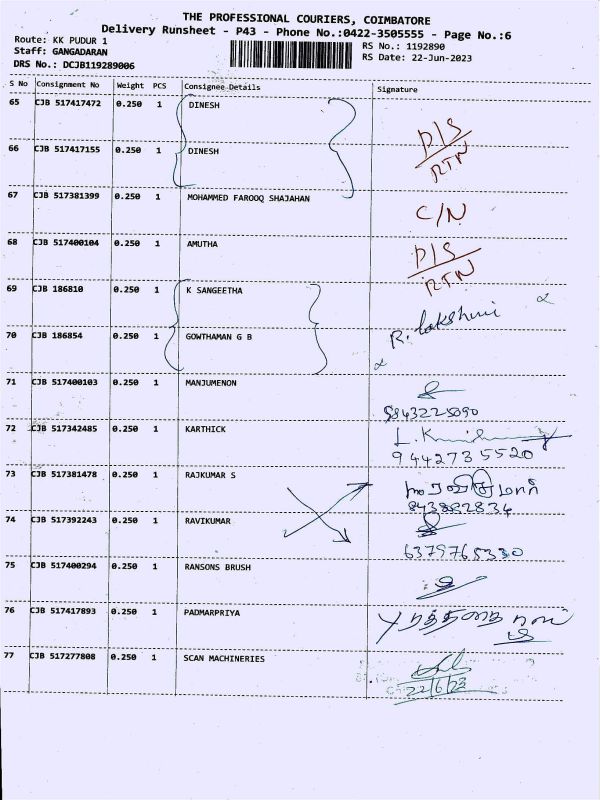 THE PROFESSIONAL COURIERS, COIMBATORE
Delivery Runsheet - P43 - Phone No.:0422-3505555 - Page No.:6
Route: KK PUDUR 1
RS No.: 1192890
Staff: GANGADARAN
RS Date: 22-Jun-2023
DRS No.: DCJB119289006
S No Consignment No Weight PCS Consignee Details Signature
65 CJB 517417472 0.250 1 DINESH
D/S
RTN
66 CJB 517417155 0.250 1 DINESH
67 CJB 517381399 0.250 1 MOHAMMED FAROOQ SHAJAHAN C/N
68 CJB 517400104 0.250 1 AMUTHA
D/S
RTN
69 CJB 186810 0.250 1 K SANGEETHA
R. lakshmi
70 CJB 186854 0.250 1 GOWTHAMAN G B
71 CJB 517400103 0.250 1 MANJUMENON
9843225090
72 CJB 517342485 0.250 1 KARTHICK
9442735520
73 CJB 517381478 0.250 1 RAJKUMAR S
74 CJB 517392243 0.250 1 RAVIKUMAR
6379765330
75 CJB 517400294 0.250 1 RANSONS BRUSH
76 CJB 517417893 0.250 1 PADMARPRIYA
77 CJB 517277808 0.250 1 SCAN MACHINERIES
22/6/23